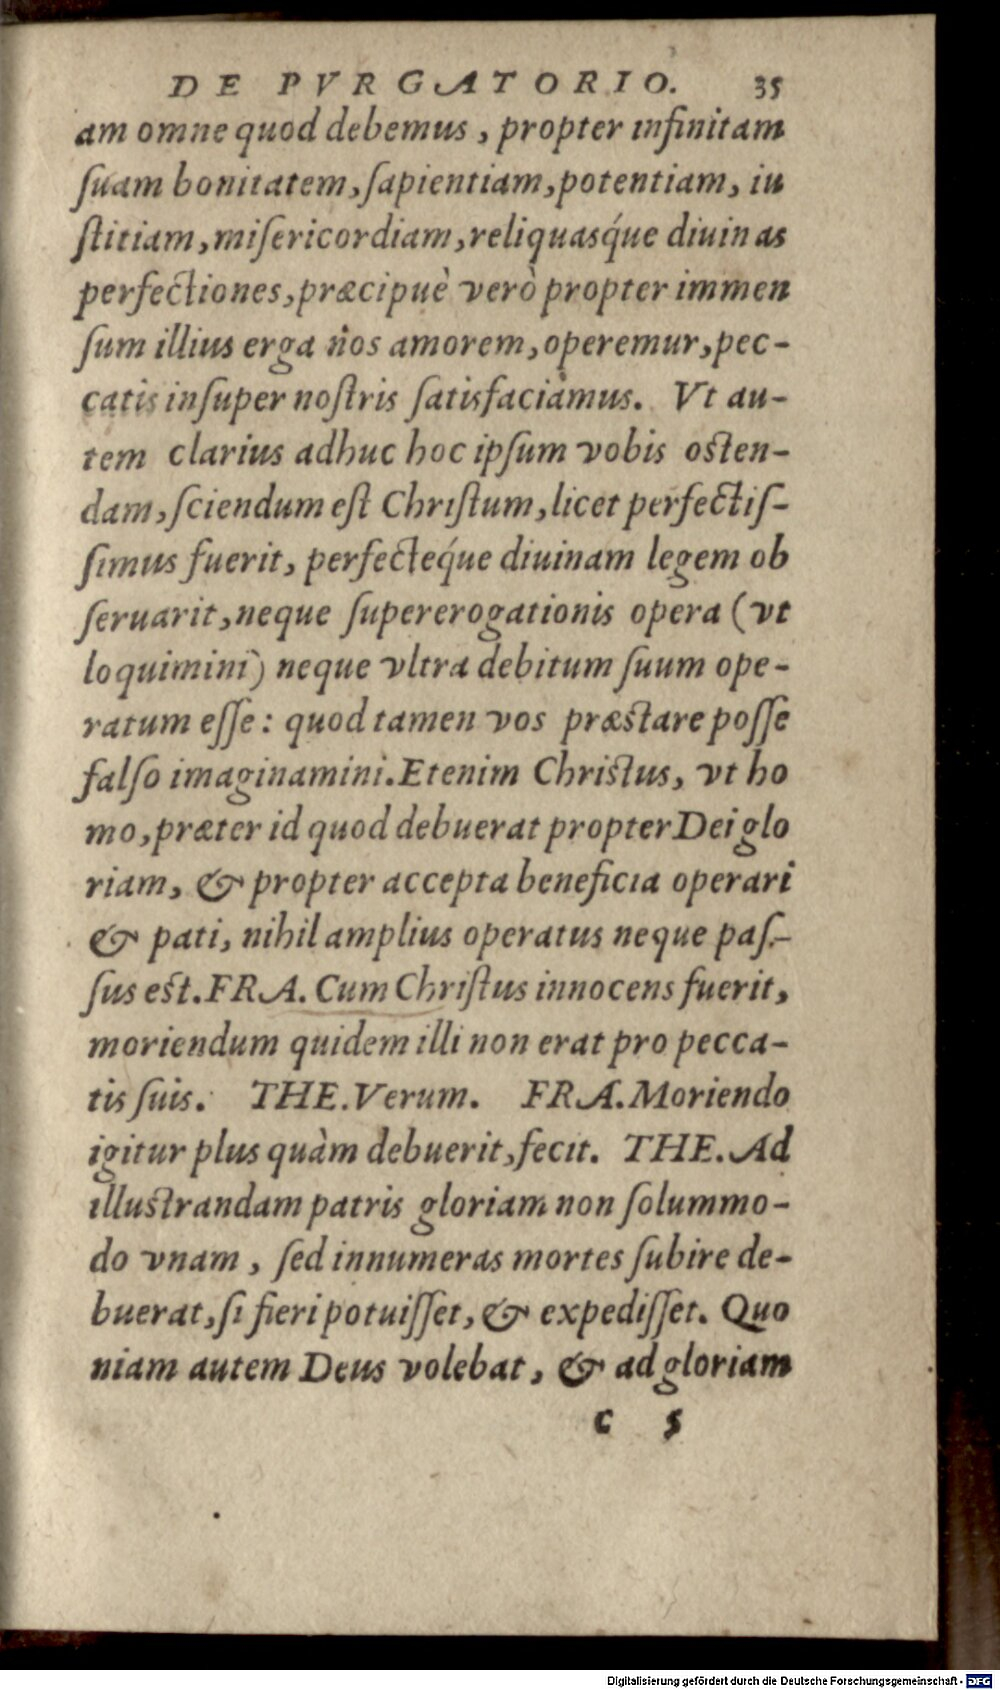 DE PVRGATORIO. 35
am omne quod debemus, propter infinitam
ſuam bonitatem, ſapientiam, potentiam, iu
ſtitiam, miſericordiam, reliquasq́ue diuinas
perfectiones, præcipuè verò propter immen
ſum illius erga nos amorem, operemur, pec-
catis inſuper noſtris ſatisfaciamus. Vt au-
tem clarius adhuc hoc ipſum vobis oſten-
dam, ſciendum eſt Chriſtum, licet perfectiſ-
ſimus fuerit, perfecteq́ue diuinam legem ob
ſeruarit, neque ſupererogationis opera (vt
loquimini) neque vltra debitum ſuum ope-
ratum eſſe: quod tamen vos præſtare poſſe
falſo imaginamini. Etenim Chriſtus, vt ho
mo, præter id quod debuerat propter Dei glo
riam, & propter accepta beneficia operari
& pati, nihil amplius operatus neque paſ-
ſus eſt. FRA. Cum Chriſtus innocens fuerit,
moriendum quidem illi non erat pro pecca-
tis ſuis. THE. Verum. FRA. Moriendo
igitur plus quàm debuerit, fecit. THE. Ad
illuſtrandam patris gloriam non ſolummo-
do vnam, ſed innumeras mortes ſubire de-
buerat, ſi fieri potuiſſet, & expediſſet. Quo
niam autem Deus volebat, & ad gloriam
c 5
Digitalisierung gefördert durch die Deutsche Forschungsgemeinschaft - DFG